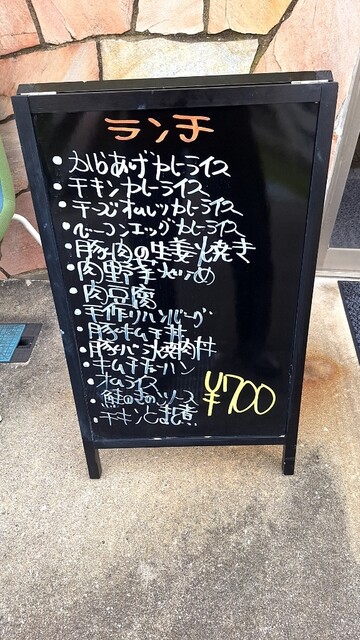 ランチ
からあげカレーライス
チキンカレーライス
チーズオムレツカレーライス
ベーコンエッグカレーライス
豚肉の生姜焼き
肉野菜炒め
肉豆腐
手作りハンバーグ
豚キムチ丼
豚バラ焼肉丼
キムチチャーハン
オムライス
鮭のきのこソース
チキントマト煮
¥700